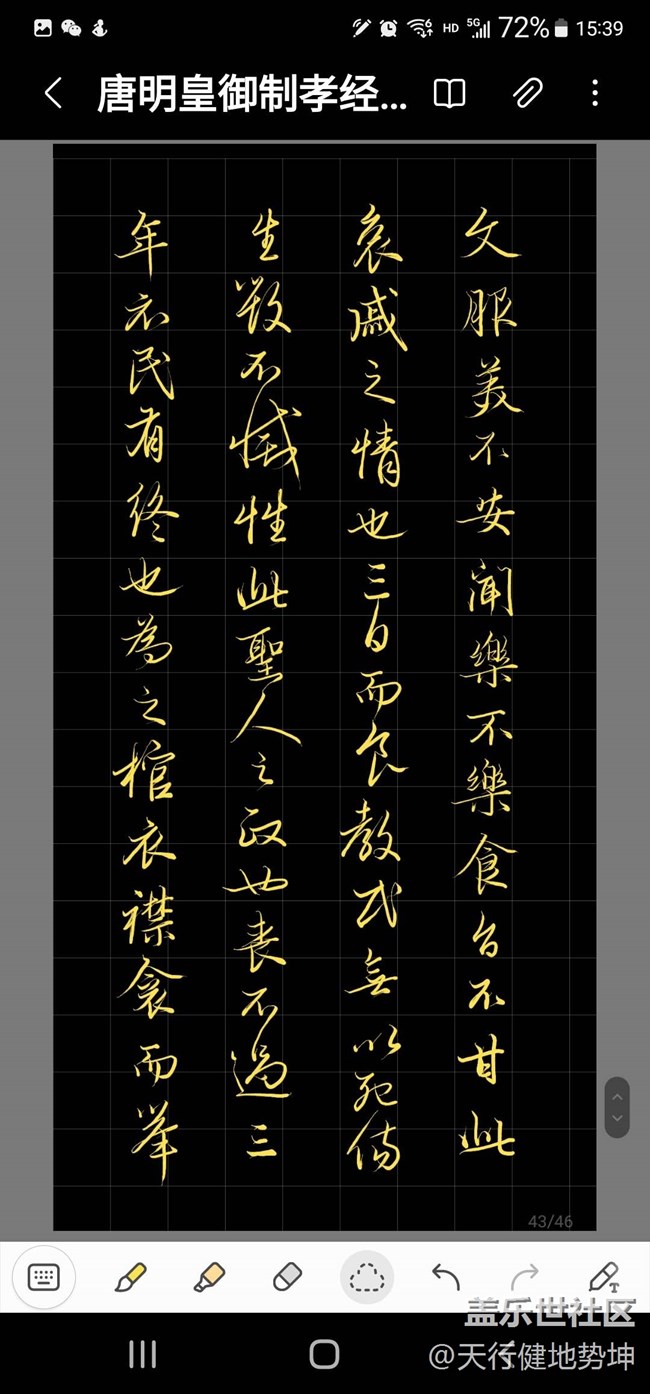 15:39
72%
HD
5G
唐明皇御制孝经...
文服美不安聞樂不樂食旨不甘此
哀戚之情也三日而食教民無以死傷
生毀不滅性此聖人之政也喪不過三
年示民有終也為之棺衣襟衾而舉
43/46
盖乐世社区
@天行健地势坤